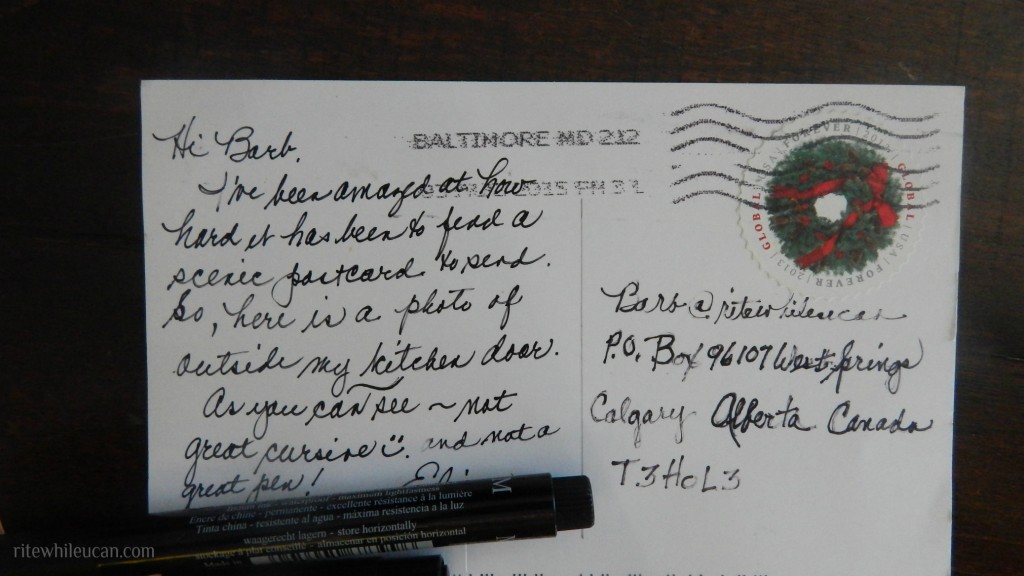 Hi Barb,
I've been amazed at how
hard it has been to find a
scenic postcard to send.
So, here is a photo of
outside my kitchen door.
As you can see ~ not
great cursive :). and not a
great pen!
BALTIMORE MD 212
2015 PM 3 L
GLOBAL | USA | FOREVER | 2013
Barb @ ritewhileucan
P.O. Box 96107 West Springs
Calgary Alberta Canada
T3H0L3
M
maximum lightfastness
Encre de chine - permanente - excellente résistance à la lumière
Tinta china - resistente al agua - máxima resistencia a la luz
waagerecht lagern - store horizontally
almacenar en posición horizontal
Made in
ritewhileucan.com